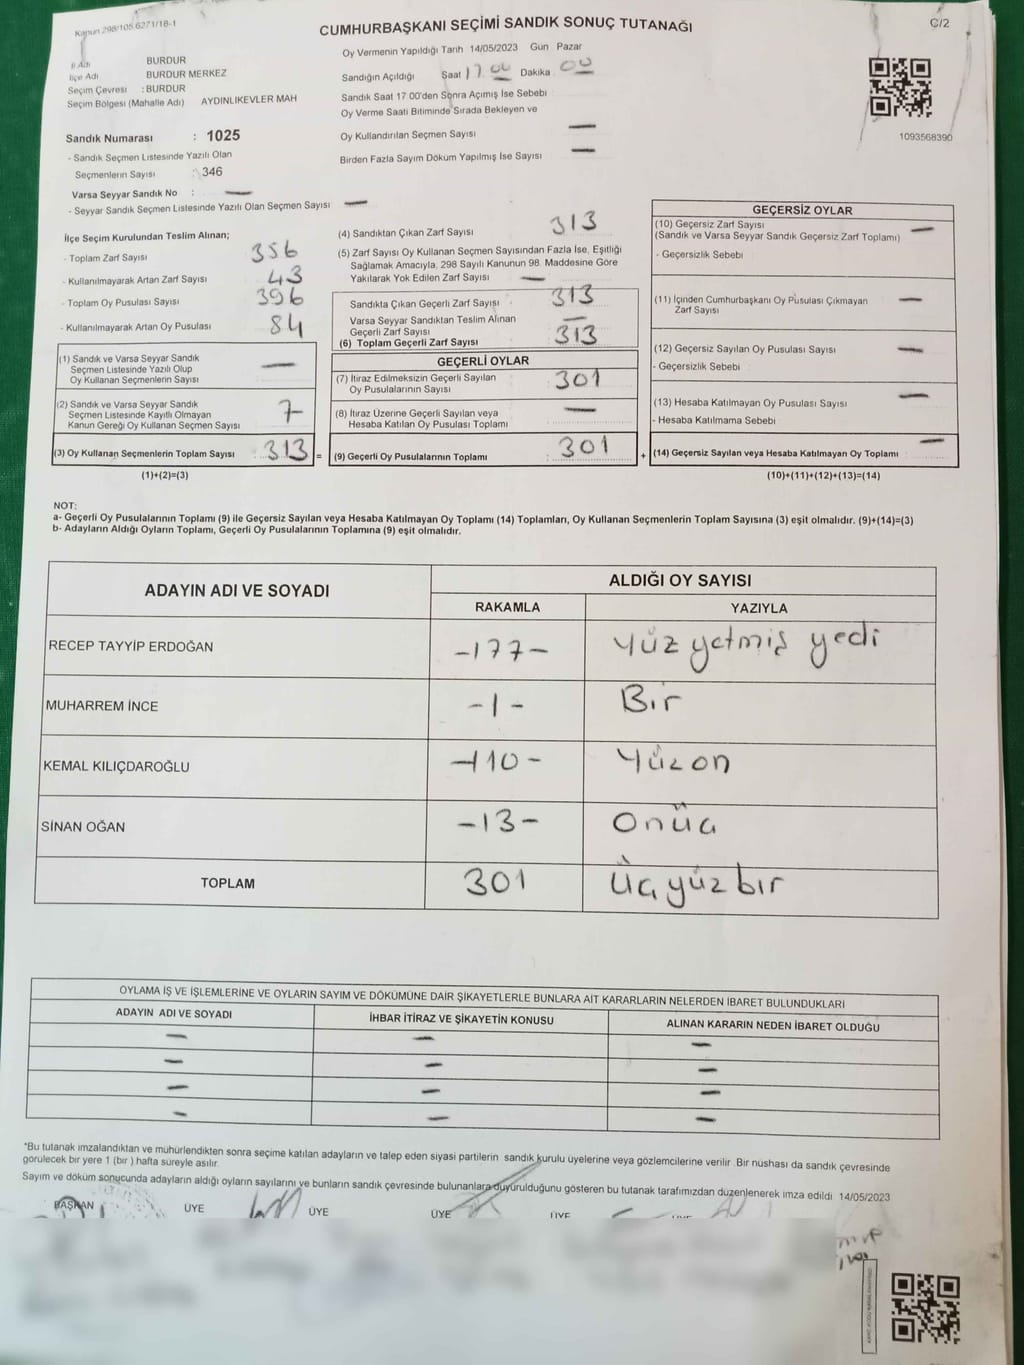 Kanun 298/105,6271/16-1
CUMHURBAŞKANI SEÇİMİ SANDIK SONUÇ TUTANAĞI
C/2
İl Adı BURDUR
İlçe Adı BURDUR MERKEZ
Seçim Çevresi : BURDUR
Seçim Bölgesi (Mahalle Adı) AYDINLIKEVLER MAH
Sandık Numarası : 1025
- Sandık Seçmen Listesinde Yazılı Olan
Seçmenlerin Sayısı : 346
Varsa Seyyar Sandık No : —
- Seyyar Sandık Seçmen Listesinde Yazılı Olan Seçmen Sayısı —
Oy Vermenin Yapıldığı Tarih 14/05/2023 Gün Pazar
Sandığın Açıldığı Saat 17.00 Dakika 00
Sandık Saat 17.00'den Sonra Açımış İse Sebebi
Oy Verme Saati Bitiminde Sırada Bekleyen ve
Oy Kullandırılan Seçmen Sayısı —
Birden Fazla Sayım Döküm Yapılmış İse Sayısı —
1093568390
İlçe Seçim Kurulundan Teslim Alınan;
- Toplam Zarf Sayısı 356
- Kullanılmayarak Artan Zarf Sayısı 43
- Toplam Oy Pusulası Sayısı 396
- Kullanılmayarak Artan Oy Pusulası 84
(1) Sandık ve Varsa Seyyar Sandık
Seçmen Listesinde Yazılı Olup
Oy Kullanan Seçmenlerin Sayısı —
(2) Sandık ve Varsa Seyyar Sandık
Seçmen Listesinde Kayıtlı Olmayan
Kanun Gereği Oy Kullanan Seçmen Sayısı 7
(3) Oy Kullanan Seçmenlerin Toplam Sayısı : 313 =
(1)+(2)=(3)
(4) Sandıktan Çıkan Zarf Sayısı 313
(5) Zarf Sayısı Oy Kullanan Seçmen Sayısından Fazla İse, Eşitliği
Sağlamak Amacıyla, 298 Sayılı Kanunun 98. Maddesine Göre
Yakılarak Yok Edilen Zarf Sayısı —
Sandıkta Çıkan Geçerli Zarf Sayısı 313
Varsa Seyyar Sandıktan Teslim Alınan
Geçerli Zarf Sayısı —
(6) Toplam Geçerli Zarf Sayısı 313
GEÇERLİ OYLAR
(7) İtiraz Edilmeksizin Geçerli Sayılan
Oy Pusulalarının Sayısı 301
(8) İtiraz Üzerine Geçerli Sayılan veya
Hesaba Katılan Oy Pusulası Toplamı —
(9) Geçerli Oy Pusulalarının Toplamı : 301 +
GEÇERSİZ OYLAR
(10) Geçersiz Zarf Sayısı
(Sandık ve Varsa Seyyar Sandık Geçersiz Zarf Toplamı) —
- Geçersizlik Sebebi
(11) İçinden Cumhurbaşkanı Oy Pusulası Çıkmayan
Zarf Sayısı —
(12) Geçersiz Sayılan Oy Pusulası Sayısı —
- Geçersizlik Sebebi
(13) Hesaba Katılmayan Oy Pusulası Sayısı —
- Hesaba Katılmama Sebebi
(14) Geçersiz Sayılan veya Hesaba Katılmayan Oy Toplamı —
(10)+(11)+(12)+(13)=(14)
NOT:
a- Geçerli Oy Pusulalarının Toplamı (9) ile Geçersiz Sayılan veya Hesaba Katılmayan Oy Toplamı (14) Toplamları, Oy Kullanan Seçmenlerin Toplam Sayısına (3) eşit olmalıdır. (9)+(14)=(3)
b- Adayların Aldığı Oyların Toplamı, Geçerli Oy Pusulalarının Toplamına (9) eşit olmalıdır.
ADAYIN ADI VE SOYADI ALDIĞI OY SAYISI
RAKAMLA YAZIYLA
RECEP TAYYİP ERDOĞAN -177- Yüz yetmiş yedi
MUHARREM İNCE -1- Bir
KEMAL KILIÇDAROĞLU -110- Yüzon
SİNAN OĞAN -13- Onüç
TOPLAM 301 Üçyüzbir
OYLAMA İŞ VE İŞLEMLERİNE VE OYLARIN SAYIM VE DÖKÜMÜNE DAİR ŞİKAYETLERLE BUNLARA AİT KARARLARIN NELERDEN İBARET BULUNDUKLARI
ADAYIN ADI VE SOYADI İHBAR İTİRAZ VE ŞİKAYETİN KONUSU ALINAN KARARIN NEDEN İBARET OLDUĞU
— — —
— — —
— — —
— — —
*Bu tutanak imzalandıktan ve mühürlendikten sonra seçime katılan adayların ve talep eden siyasi partilerin sandık kurulu üyelerine veya gözlemcilerine verilir. Bir nüshası da sandık çevresinde
görülecek bir yere 1 (bir) hafta süreyle asılır.
Sayım ve döküm sonucunda adayların aldığı oyların sayılarını ve bunların sandık çevresinde bulunanlara duyurulduğunu gösteren bu tutanak tarafımızdan düzenlenerek imza edildi 14/05/2023
BAŞKAN ÜYE ÜYE ÜYE ÜYE ÜYE